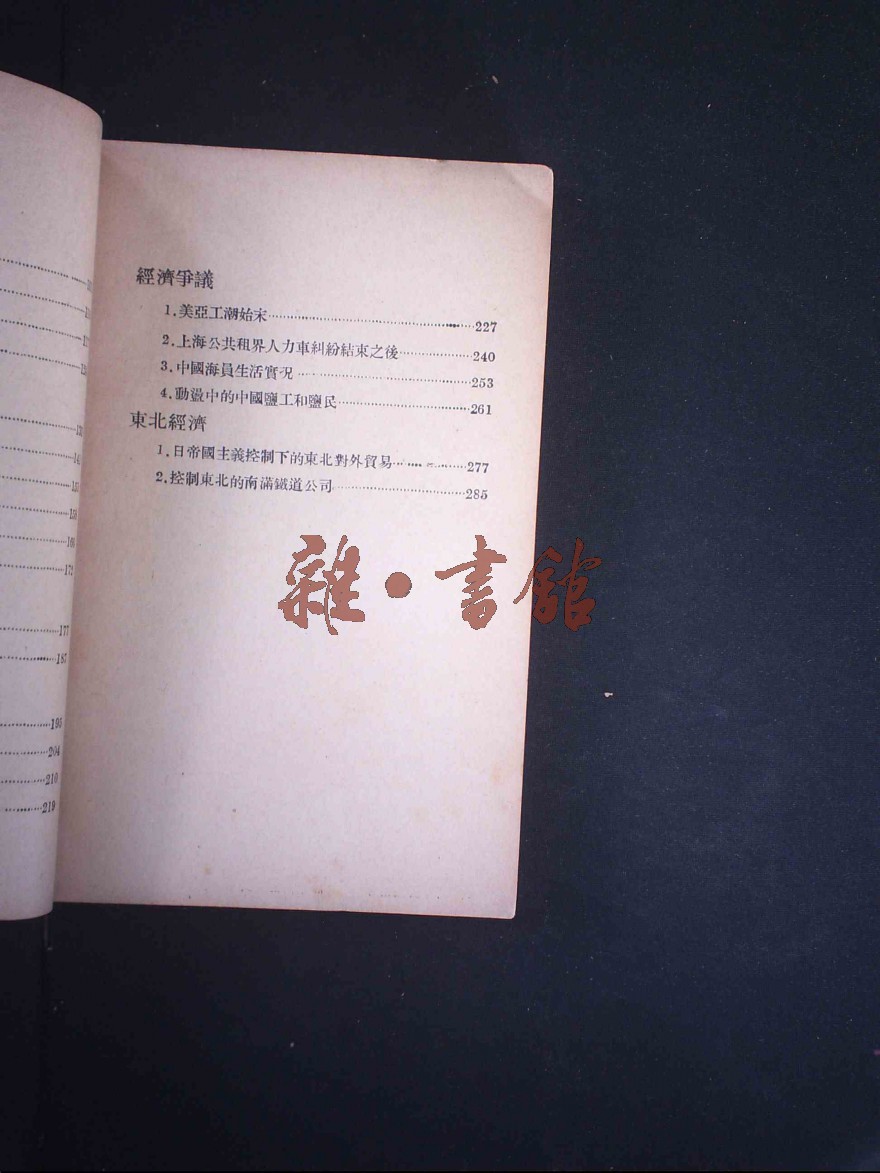 經濟爭議
1.美亞工潮始末 227
2.上海公共租界人力車糾紛結束之後 240
3.中國海員生活實況 253
4.動盪中的中國鹽工和鹽民 261
東北經濟
1.日帝國主義控制下的東北對外貿易 277
2.控制東北的南滿鐵道公司 285
雜·書館
177
187
195
204
210
219